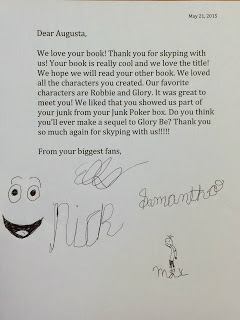 May 21, 2015
Dear Augusta,
We love your book! Thank you for skyping with
us! Your book is really cool and we love the title!
We hope we will read your other book. We loved
all the characters you created. Our favorite
characters are Robbie and Glory. It was great to
meet you! We liked that you showed us part of
your junk from your Junk Poker box. Do you think
you'll ever make a sequel to Glory Be? Thank you
so much again for skyping with us!!!!!
From your biggest fans,
Samantha
Nick
Max